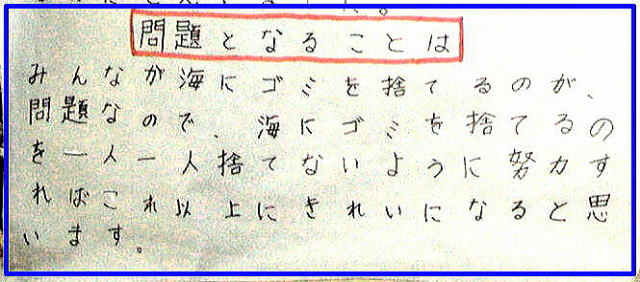 問題となることは
みんなが海にゴミを捨てるのが、
問題なので、海にゴミを捨てるの
を一人一人捨てないように努力す
ればこれ以上にきれいになると思
います。